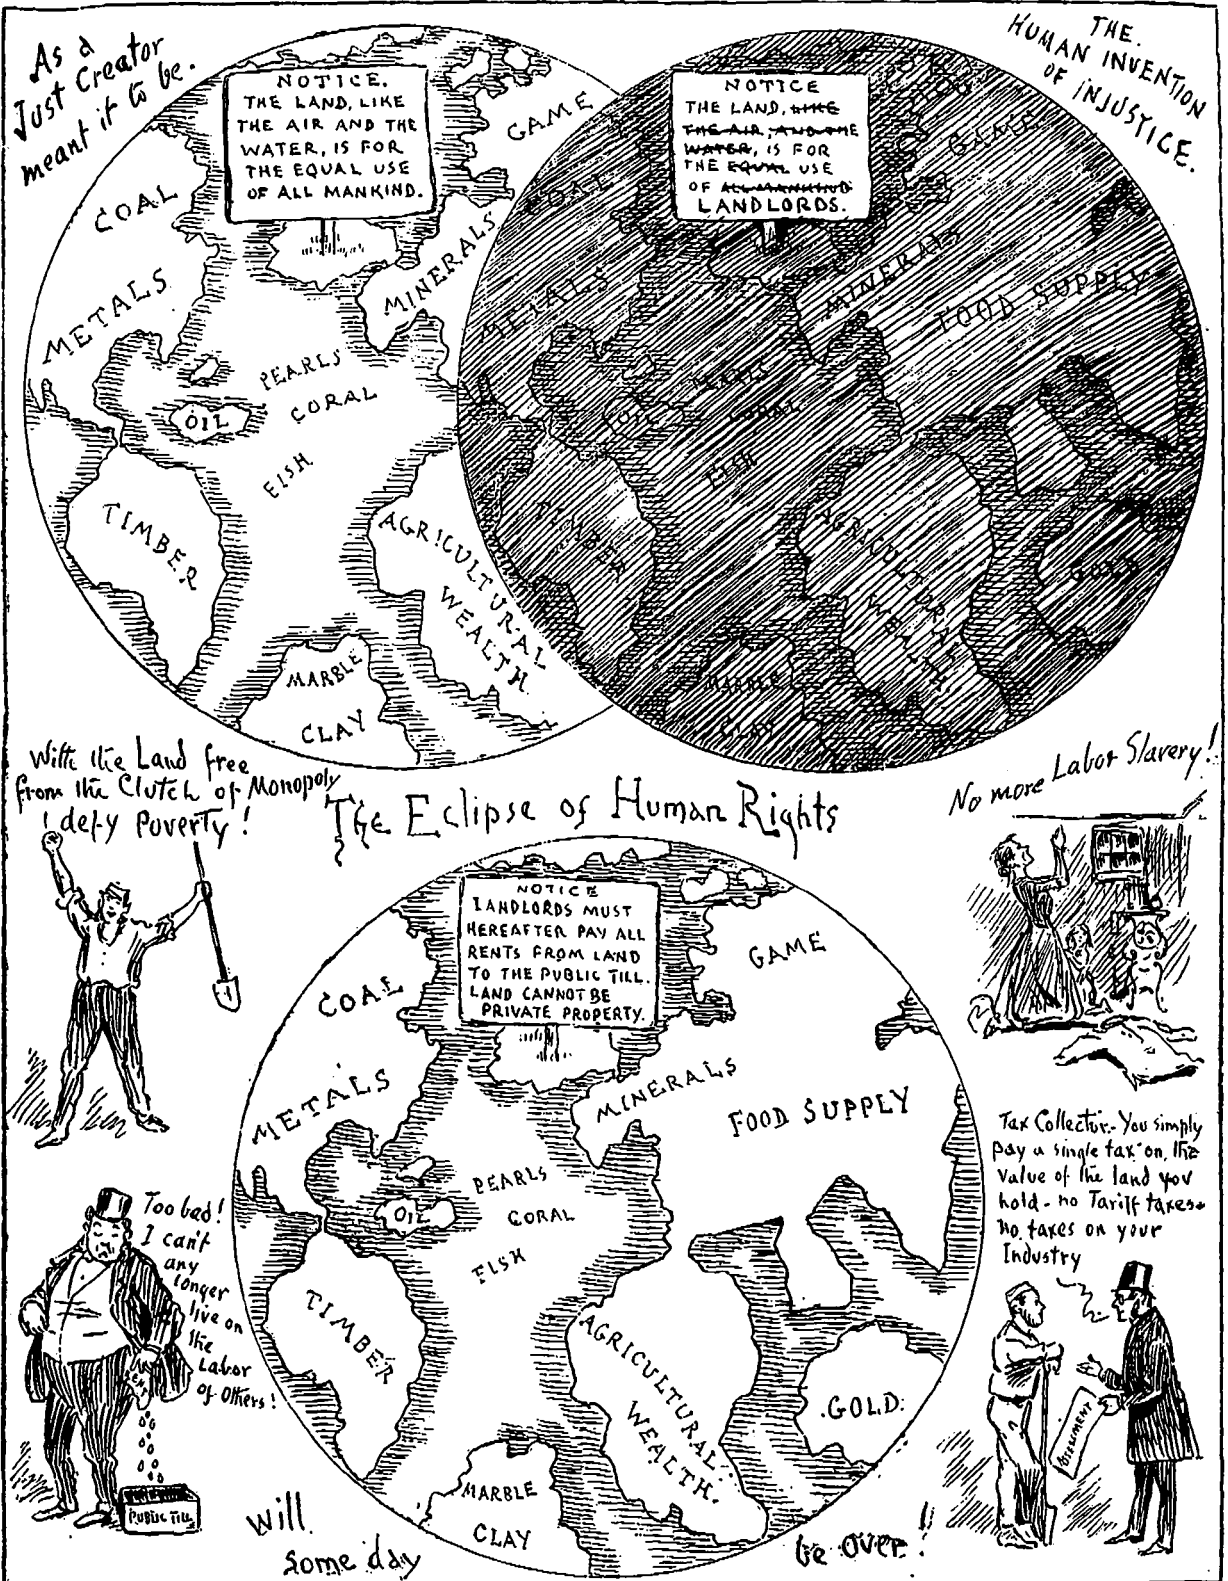 As a
Just Creator
meant it to be.
THE
HUMAN INVENTION
OF INJUSTICE.
NOTICE.
THE LAND, LIKE
THE AIR AND THE
WATER, IS FOR
THE EQUAL USE
OF ALL MANKIND.
GAME
COAL
METALS
MINERALS
PEARLS
CORAL
OIL
FISH
TIMBER
AGRICULTURAL
WEALTH.
MARBLE
CLAY
NOTICE
THE LAND, LIKE
THE AIR, AND THE
WATER, IS FOR
THE EQUAL USE
OF ALL MANKIND
LANDLORDS.
GAME
COAL
METALS
MINERALS
FOOD SUPPLY
PEARLS
CORAL
OIL
FISH
TIMBER
AGRICULTURAL
WEALTH
GOLD
MARBLE
CLAY
With the Land free
from the Clutch of Monopoly
I defy Poverty!
The Eclipse of Human Rights
No more Labor Slavery!
NOTICE
LANDLORDS MUST
HEREAFTER PAY ALL
RENTS FROM LAND
TO THE PUBLIC TILL.
LAND CANNOT BE
PRIVATE PROPERTY.
GAME
COAL
METALS
MINERALS
FOOD SUPPLY
PEARLS
CORAL
OIL
FISH
TIMBER
AGRICULTURAL
WEALTH.
GOLD.
MARBLE
CLAY
Too bad!
I can't
any
longer
live on
the
Labor
of Others!
RENT
PUBLIC TILL
Tax Collector.- You simply
pay a single tax on the
value of the land you
hold - no Tariff taxes -
no taxes on your
Industry
ASSESSMENT
Will
some day
be over!